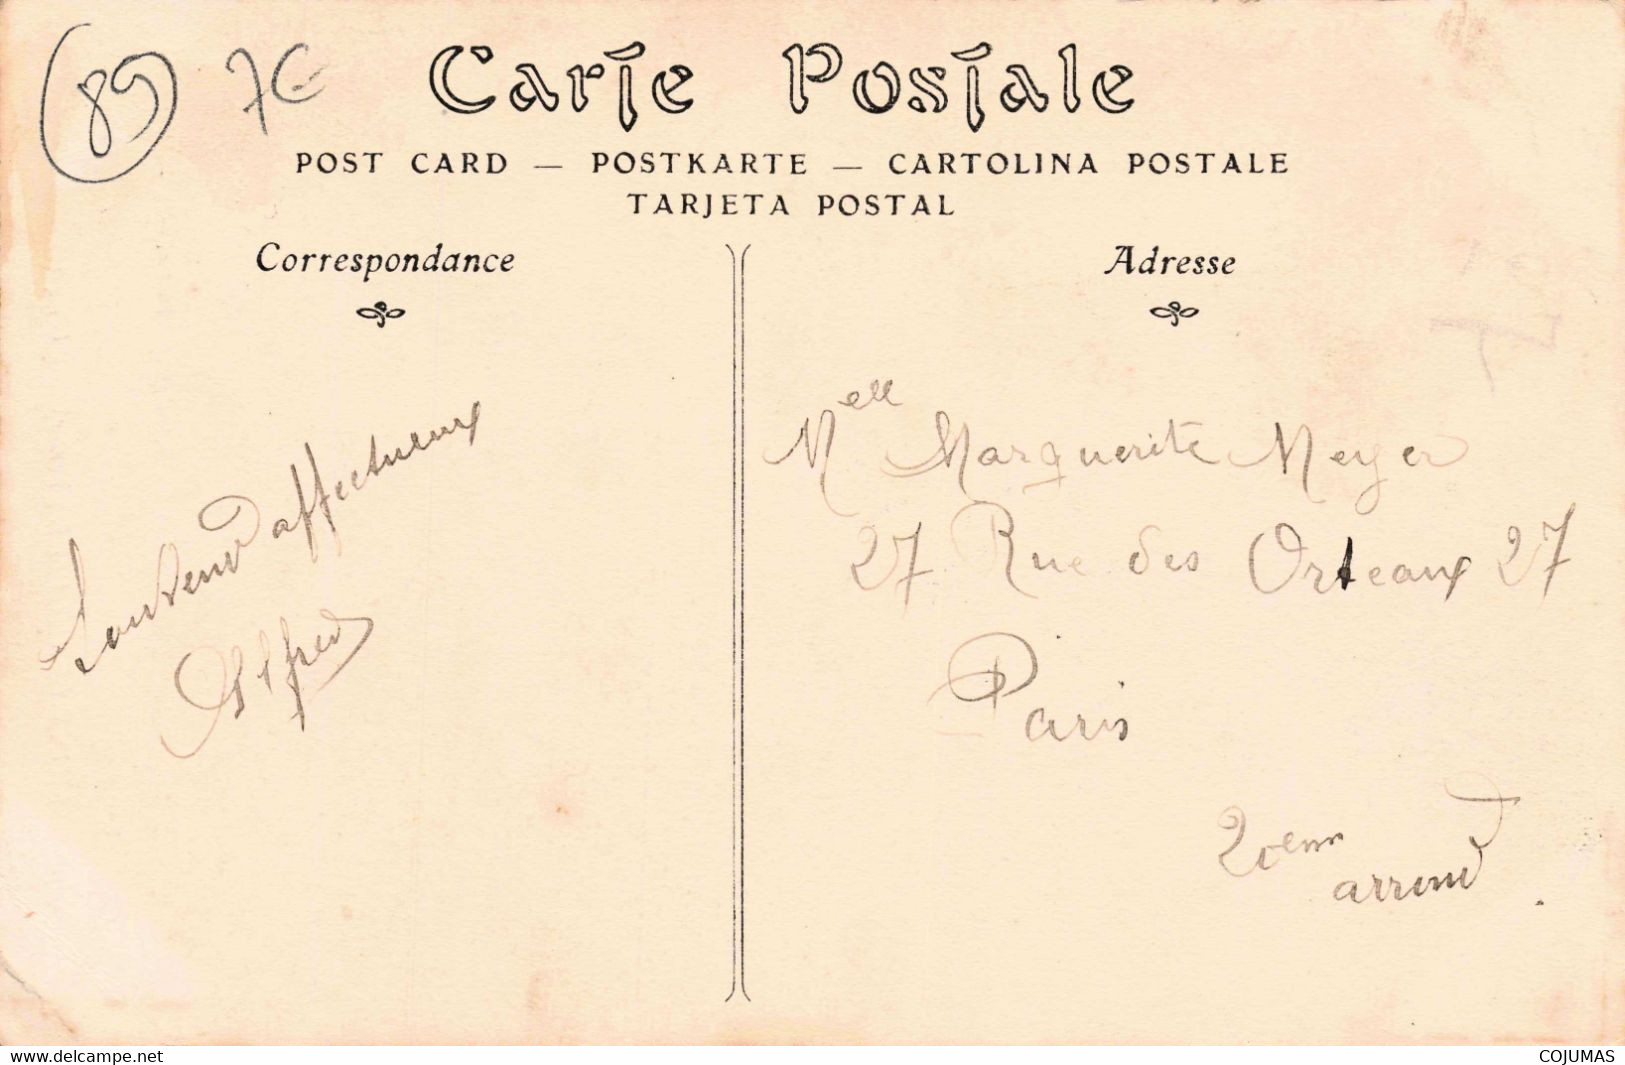 89 7€
Carte Postale
POST CARD — POSTKARTE — CARTOLINA POSTALE
TARJETA POSTAL
Correspondance
Souvenir affectueux
Alfred
Adresse
Mell Marguerite Meyer
27 Rue des Orteaux 27
Paris
20em
arrond
www.delcampe.net
COJUMAS